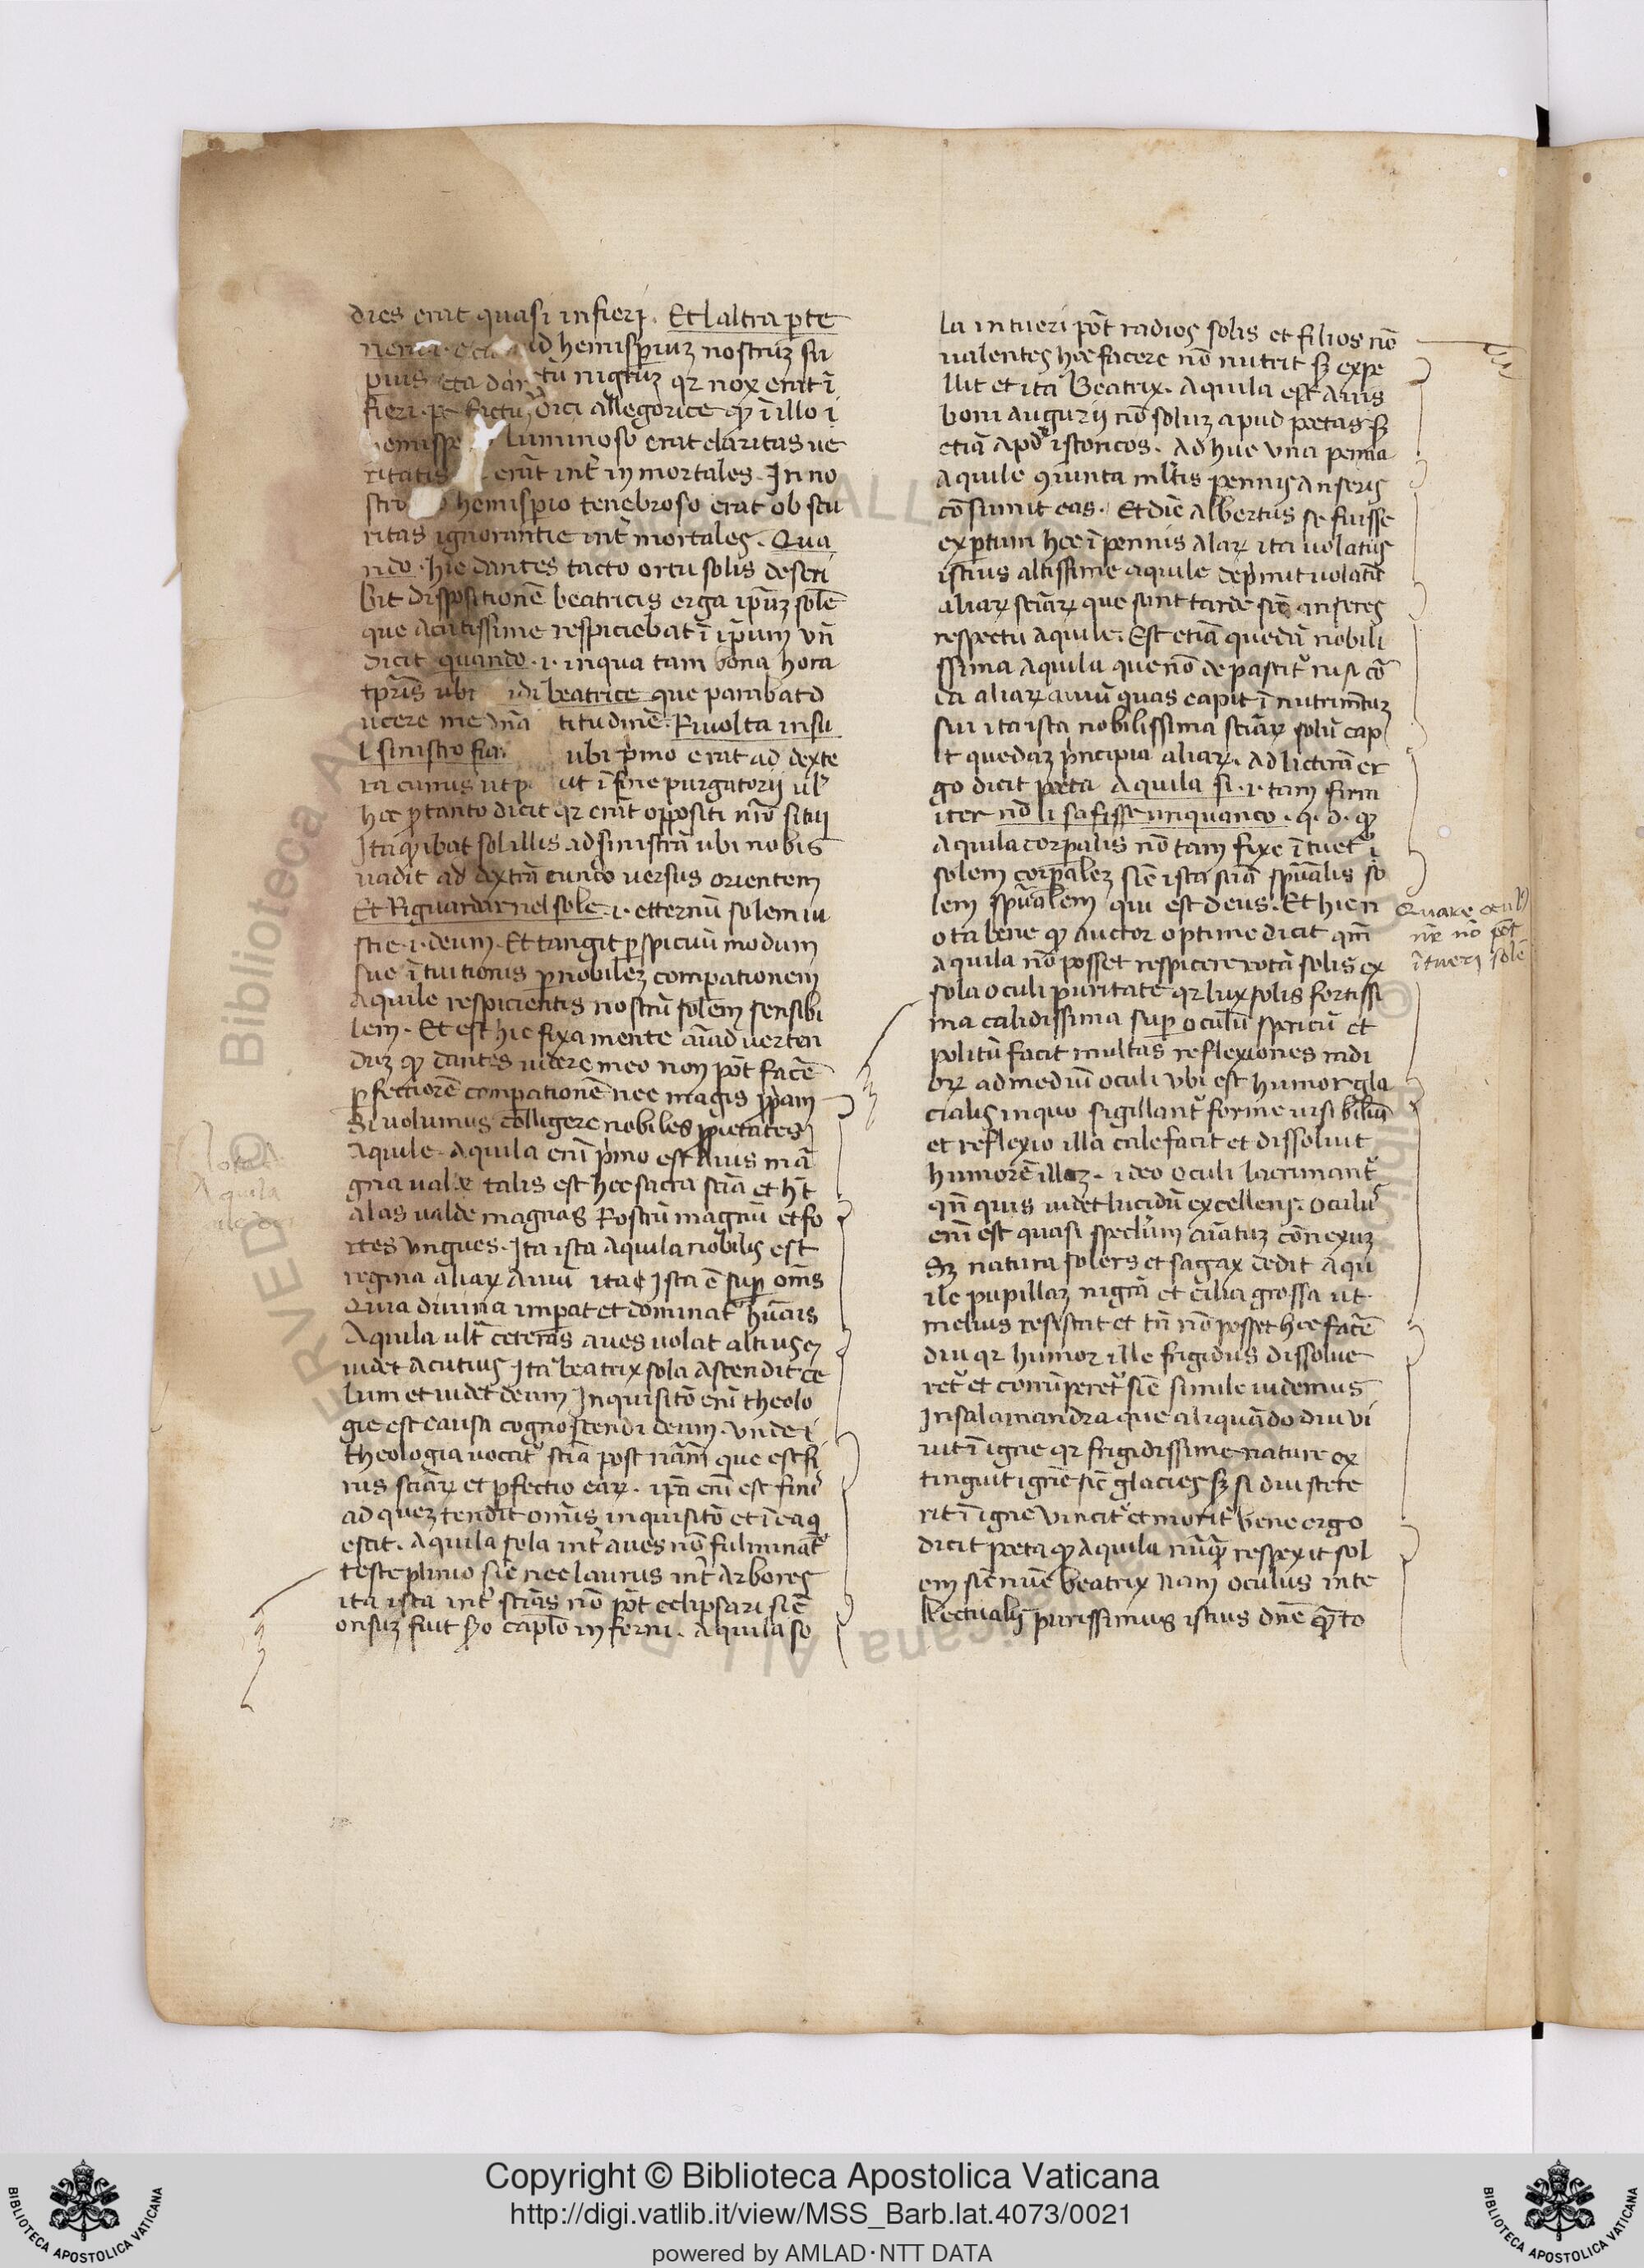 dies erat quasi in fieri. Et laltra pte
hemispiuz nostruz su
nigruz qr nox erat ī
fieri. dici allegorice ꝙ ī illo i
luminoso erat claritas ue
ritatis erāt int̄ īmortales. In no
stro hemispio tenebroso erat obscu
ritas ignorantie int̄ mortales. Qua
ndo. hic dantes tacto ortu solis descri
bit dispositionē beatricis erga ip̄uz solē
que acutissime respiciebat ī ip̄um vn̄
dicit quando .i. in qua tam bona hora
tp̄ris ubi idi beatrice que parabat d
ucere me titudinē. Riuolta in su
l sinistro fia ubi p̄mo erat ad dexte
ra currus ut p ut ī fine purgatorij ul
hec ꝓtanto dicit qr erāt oppositi nr̄o situj
Ita ꝙ ibat sol illis ad sinistrā ubi nobis
uadit ad dextrā eundo versus orientem
Et Riguardar nel sole .i. etternū solem iu
stie .i. deum. Et tangit pspicuū modum
sue ītuitionis p nobilez compationem
Aquile respicientis nostrū solem sensibi
lem. Et est hic fixa mente aīaduerten
duz ꝙ dantes uidere meo non pōt facē
pfectiorē compationē nec magis ꝓpam
Si uolumus colligere nobiles ꝓpietates
Aquile. Aquila enī p̄mo est Auis mā
gna ualde talis est hec sacra sciā et hт̄
alas ualde magnas Rostrū magnū et fo
rtes vngues. Ita ista Aquila nobilis est
regina aliaꝝ Auiū ista ē sup om̄s
Quia diuina impat et dominat hūāis
Aquila ult̄ ceteras aues uolat altius
uidet acutius Ita beatrix sola Ascendit ce
lum et uidet deum Inquisitō enī theolo
gie est causa cognoscendi deum. Vnde i
theologia uocat sciā post nām que est fi
nis sciāꝝ et pfectio eaꝝ. ip̄a enī est finis
ad quez tendit om̄is inquisitō et ī ea q̄i
escit. Aquila sola int̄ aues nō fulminat
teste plinio sic̄ nec laurus int̄ Arbores
ita ista int̄ sciās nō pōt eclipsari sic̄
onsuz fuit caplo inferni. Aquila so
la intueri pōt radios solis et filios nō
ualentes hec facere nō nutrit sz expe
llit et ita Beatrix. Aquila est Auis
boni augurij nō soluz apud poetas sz
etiā apd istoricos. Ad huc vna penna
Aquile ꝯiunta ml̄tis pennis Anseris
cōsumit eas. Et dic̄ Albertus se fuisse
exptum hec ī pennis Alaꝝ ita uolatus
istius altissime aquile dep̄mit uolatū
aliaꝝ sciāꝝ que sunt tarde sic̄ anseres
respectu Aquile. Est etiā quedā nobili
ssima Aquila que nō depascit nisi cō
da aliaꝝ auiū quas capit ī nutrimtuz
sui ita ista nobilissima sciāꝝ solū cap
it quedaz p̄ncipia aliaꝝ. Ad litterā er
go dicit poeta Aquila si .i. tam firm
iter nō li safisse unquanco. q. d. ꝙ
Aquila corpalis nō tam fixe ītuet i
solem corpalez sic̄ ista sciā spūalis so
lem spūalem qui est deus. Et hic n
ota bene ꝙ auctor optime dicit qm̄
Aquila nō posset respicere rotā solis ex
sola oculi puritate qr lux solis fortissi
ma calidissima sup oculū spericū et
politū facit multas reflexiones radi
orꝝ ad mediū oculi vbi est humor gla
cialis in quo sigillant forme uisibiliū
et reflexio illa calefacit et dissoluit
humorē illuz. ideo oculi lacrimant
qn̄ quis uidet lucidū excellens. oculus
enī est quasi spectlum aīatuz cōnexuz
Sz natura solers et sagax dedit aqu
ile pupillaz nigrā et cilia grossa ut
melius resistat et tn̄ nō posset hec facē
diu qr humor ille frigidus dissolue
ret et corrūperet sic̄ simile uidemus
In salamandra que aliquādo diu vi
uit ī igne qr frigidissime nature ex
tinguit ignē sic̄ glacies sz si diu stete
rit ī igne vincit et morit bene ergo
dicit poeta ꝙ Aquila nūq respexit sol
em sic̄ nūc beatrix Nam oculus inte
llectualis purissimus istius dn̄e q̄to
Quare ocul
nr̄ nō pōt
ītueri solē
Aquila
Copyright © Biblioteca Apostolica Vaticana
http://digi.vatlib.it/view/MSS_Barb.lat.4073/0021
powered by AMLAD·NTT DATA
BIBLIOTECA APOSTOLICA VATICANA
BIBLIOTECA APOSTOLICA VATICANA